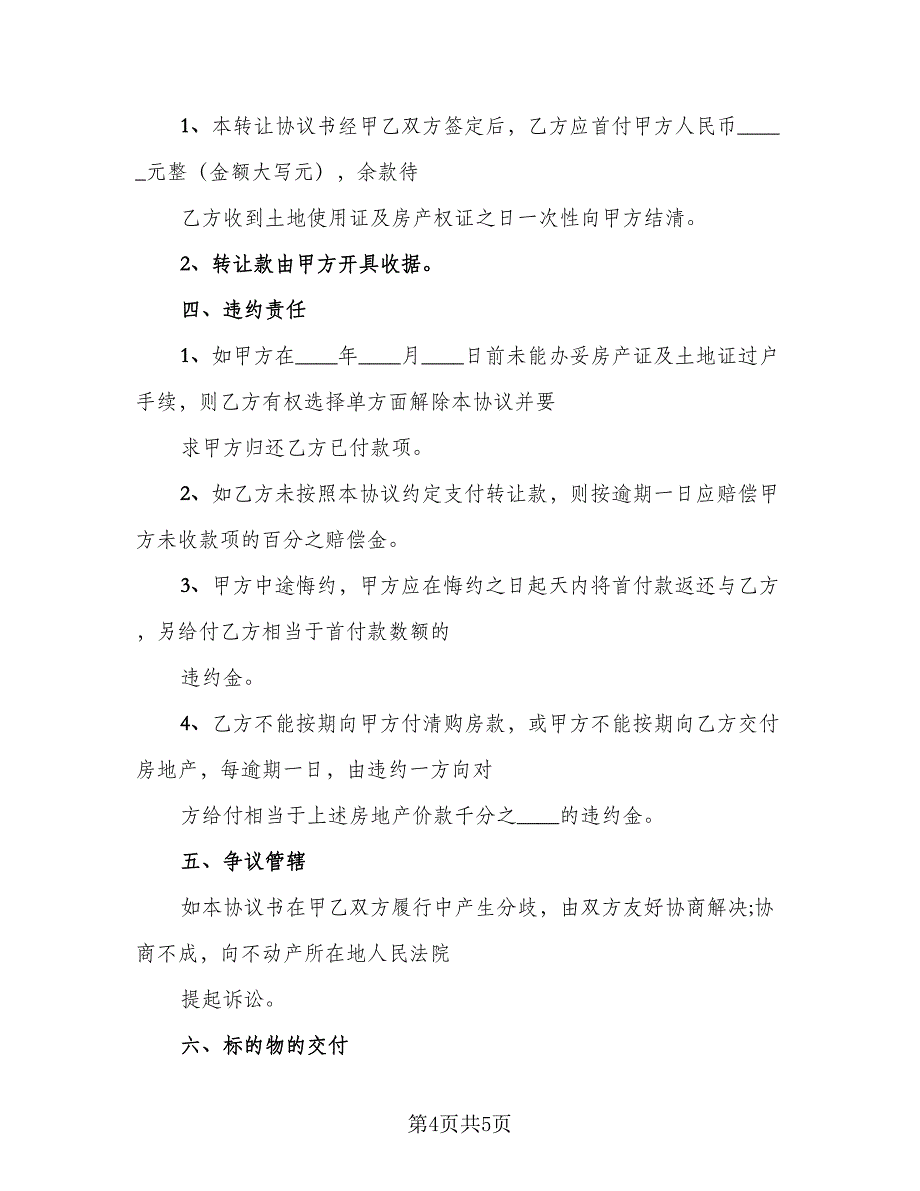 1、本转让协议书经甲乙双方签定后，乙方应首付甲方人民币____
_元整（金额大写元），余款待
乙方收到土地使用证及房产权证之日一次性向甲方结清。
2、转让款由甲方开具收据。
四、违约责任
1、如甲方在____年____月____日前未能办妥房产证及土地证过户
手续，则乙方有权选择单方面解除本协议并要
求甲方归还乙方已付款项。
2、如乙方未按照本协议约定支付转让款，则按逾期一日应赔偿甲
方未收款项的百分之赔偿金。
3、甲方中途悔约，甲方应在悔约之日起天内将首付款返还与乙方
，另给付乙方相当于首付款数额的
违约金。
4、乙方不能按期向甲方付清购房款，或甲方不能按期向乙方交付
房地产，每逾期一日，由违约一方向对
方给付相当于上述房地产价款千分之____的违约金。
五、争议管辖
如本协议书在甲乙双方履行中产生分歧，由双方友好协商解决;协
商不成，向不动产所在地人民法院
提起诉讼。
六、标的物的交付
第4页共5页